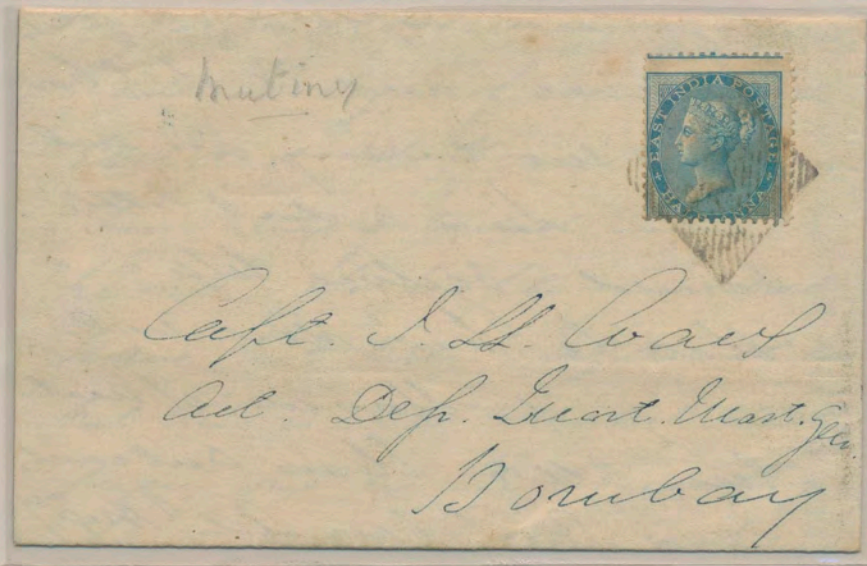 Mutiny
EAST INDIA POSTAGE
HALF ANNA
Capt. I. H.
Act. Dep. Quart. Mast. Gen.
Bombay